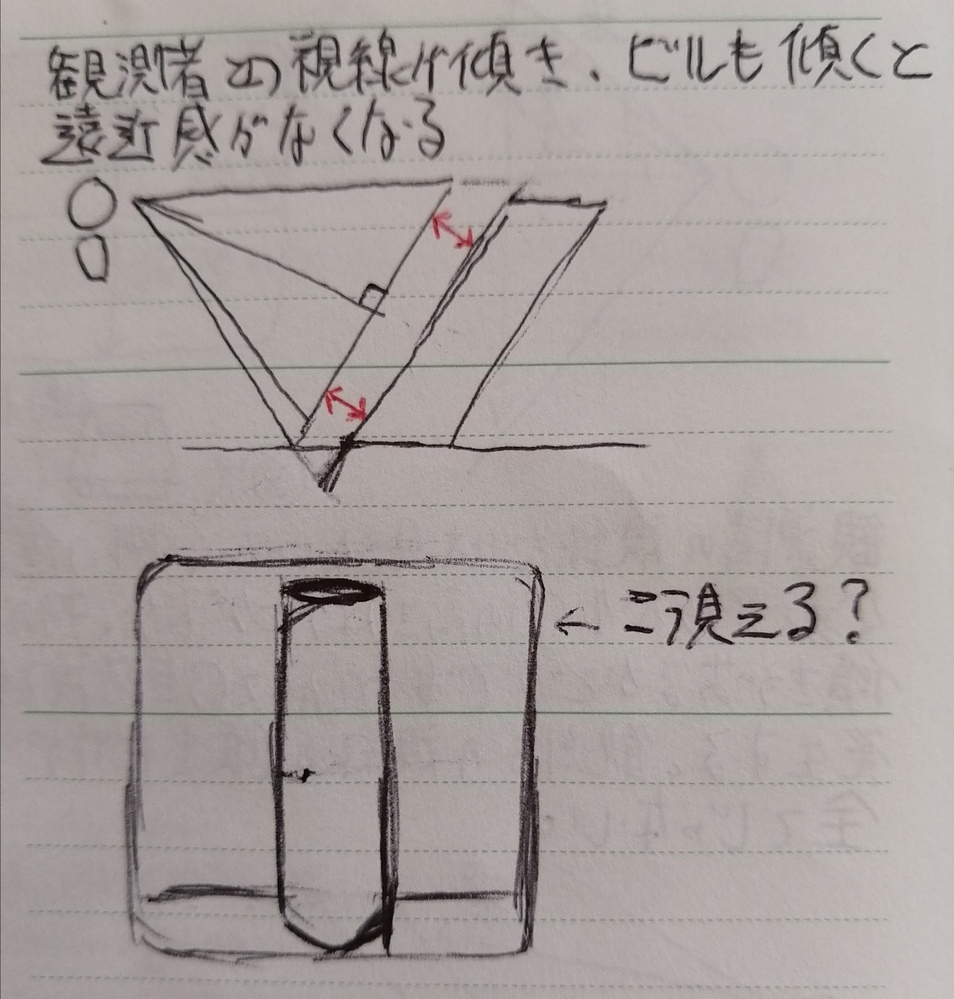 観測者の視線が傾き、ビルも傾くと
遠近感がなくなる
← こう見える?